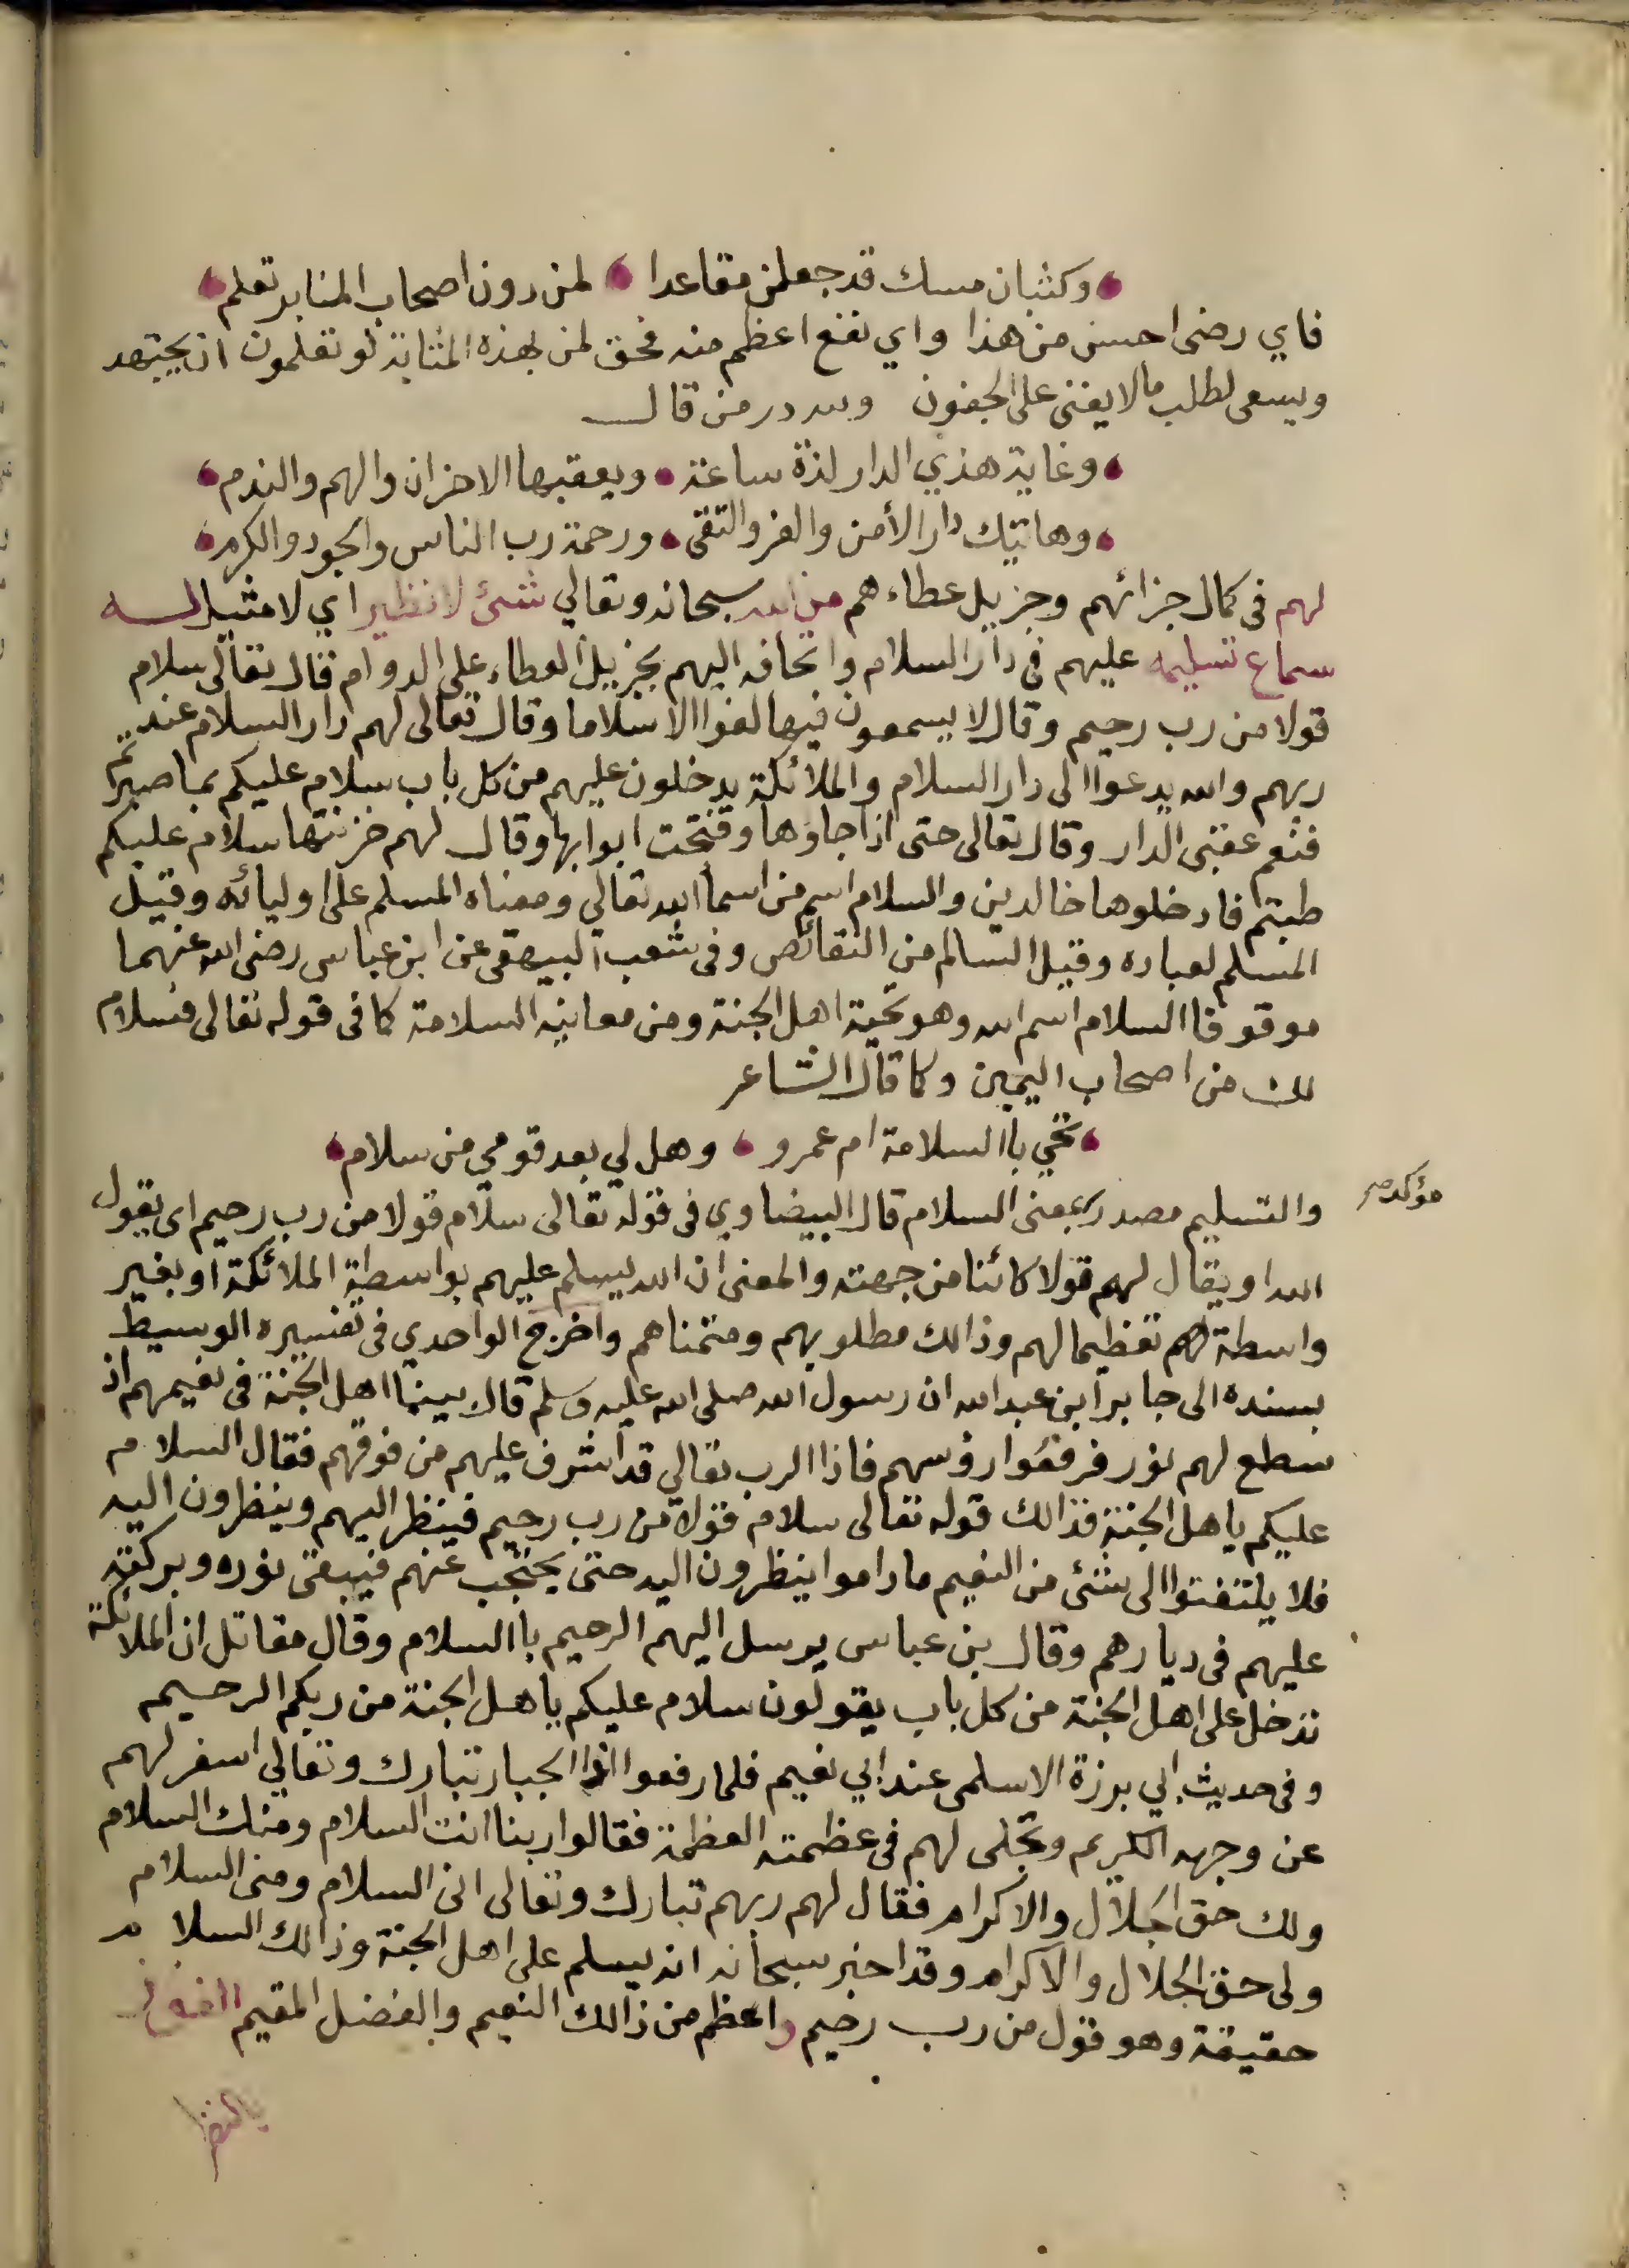 وكثبان مسك قد جعلن مقاعدا لمن دون اصحاب المنابر تعلم
فاي رضى احسن من هذا واي نفع اعظم منه فحق لمن بهذه المثابة لو تعلمون ان يجتهد
ويسعى لطلب ما لا يفنى على الجفون ولله در من قال
وغاية هذي الدار لذة ساعة ويعقبها الاحزان والهم والندم
وهاتيك دار الأمن والعز والتقى ورحمة رب الناس والجود والكرم
لهم في كمال جزائهم وجزيل عطاءهم من الله سبحانه وتعالي شئ لا نظير اي لا مثيل له
سماع تسليمه عليهم في دار السلام واتحافه اليهم بجزيل العطاء على الدوام قال تعالى سلام
قولا من رب رحيم وقال لا يسمعون فيها لغوا الا سلاما وقال تعالى لهم دار السلام عند
ربهم والله يدعوا الى دار السلام والملائكة يدخلون عليهم من كل باب سلام عليكم بما صبرتم
فنعم عقبى الدار وقال تعالى حتى اذا جاؤها وفتحت ابوابها وقال لهم خزنتها سلام عليكم
طبتم فادخلوها خالدين والسلام اسم من اسماء الله تعالي ومعناه المسلم على اوليائه وقيل
المسلم لعباده وقيل السالم من النقائص وفي شعب البيهقي عن ابن عباس رضى الله عنهما
موقوفا السلام اسم الله وهو تحية اهل الجنة ومن معانيه السلامة كما في قوله تعالى فسلام
لك من اصحاب اليمين وكما قال الشاعر
تحي باالسلامة ام عمرو وهل لي بعد قومي من سلام
والتسليم مصدر بمعنى السلام قال البيضاوي في قوله تعالى سلام قولا من رب رحيم اى يقول
مؤكد صح
الله او يقال لهم قولا كائنا من جهته والمعنى ان الله يسلم عليهم بواسطة الملائكة او بغير
واسطة لهم تعظيما لهم وذالك مطلوبهم ومتمناهم واخرج الواحدي في تفسيره الوسيط
بسنده الى جابر ابن عبد الله ان رسول الله صلى الله عليه وسلم قال بينما اهل الجنة في نعيمهم اذ
سطع لهم نور فرفعوا رؤسهم فاذا الرب تعالي قد اشرف عليهم من فوقهم فقال السلام
عليكم ياهل الجنة فذالك قوله تعالى سلام قولا من رب رحيم فينظر اليهم وينظرون اليه
فلا يلتفتوا الى شئ من النعيم ما داموا ينظرون اليه حتى يحتجب عنهم فيبقى نوره وبركته
عليهم في ديارهم وقال بن عباس يرسل اليهم الرحيم باالسلام وقال مقاتل ان الملائكة
تدخل على اهل الجنة من كل باب يقولون سلام عليكم ياهل الجنة من ربكم الرحيم
وفي حديث ابي برزة الاسلمي عند ابي نعيم فلما رفعوا اذا الجبار تبارك وتعالي اسفر لهم
عن وجهه الكريم وتجلى لهم في عظمته العظمة فقالوا ربنا انت السلام ومنك السلام
ولك حق الجلال والاكرام فقال لهم ربهم تبارك وتعالى انى السلام ومنى السلام
ولى حق الجلال والاكرام وقد اخبر سبحانه انه يسلم على اهل الجنة وذالك السلام
حقيقة وهو قول من رب رحيم واعظم من ذالك النعيم والفضل المقيم الفوز
بالنظر